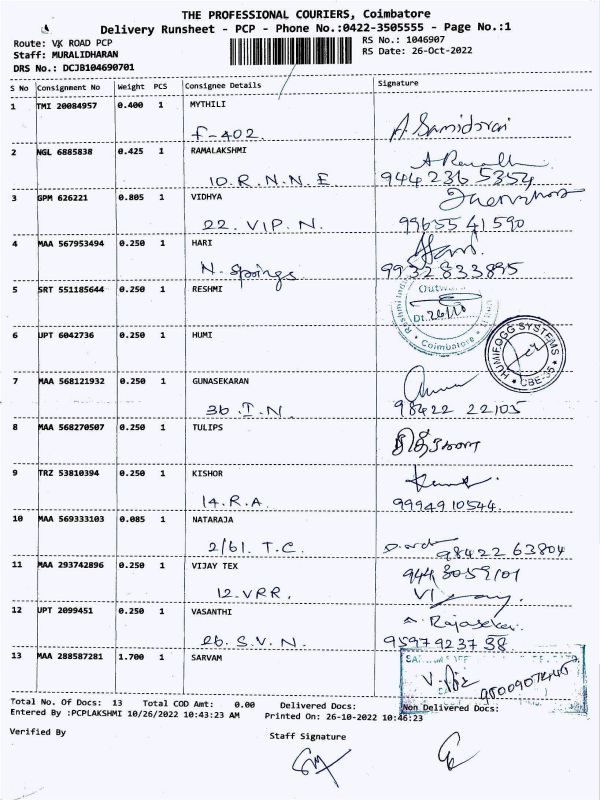 THE PROFESSIONAL COURIERS, Coimbatore
Delivery Runsheet - PCP - Phone No.:0422-3505555 - Page No.:1
Route: VK ROAD PCP RS No.: 1046907
Staff: MURALIDHARAN RS Date: 26-Oct-2022
DRS No.: DCJB104690701
S No Consignment No Weight PCS Consignee Details Signature
1 TMI 20084957 0.400 1 MYTHILI
F-402 A. Samidorai
2 NGL 6885838 0.425 1 RAMALAKSHMI
10. R. N. N. E 944 236 5354
3 GPM 626221 0.805 1 VIDHYA
22. V.I.P. N. 99655 41590
4 MAA 567953494 0.250 1 HARI
N. Springs 9932833895
5 SRT 551185644 0.250 1 RESHMI
Dt. 26/10
Coimbatore
6 UPT 6042736 0.250 1 HUMI
HUMIFOGG SYSTEMS
CBE-35
7 MAA 568121932 0.250 1 GUNASEKARAN
36. I. N. 98422 22105
8 MAA 568270507 0.250 1 TULIPS
9 TRZ 53810394 0.250 1 KISHOR
14. R.A. 9994910544
10 MAA 569333103 0.085 1 NATARAJA
2/61. T.C. 98422 63804
11 MAA 293742896 0.250 1 VIJAY TEX 944 3059101
12. VRR. Vijay
12 UPT 2099451 0.250 1 VASANTHI A. Rajasekar
26. S. V. N. 95979 237 38
13 MAA 288587281 1.700 1 SARVAM
Total No. Of Docs: 13 Total COD Amt: 0.00 Delivered Docs: Non Delivered Docs:
Entered By :PCPLAKSHMI 10/26/2022 10:43:23 AM Printed On: 26-10-2022 10:46:23
Verified By Staff Signature